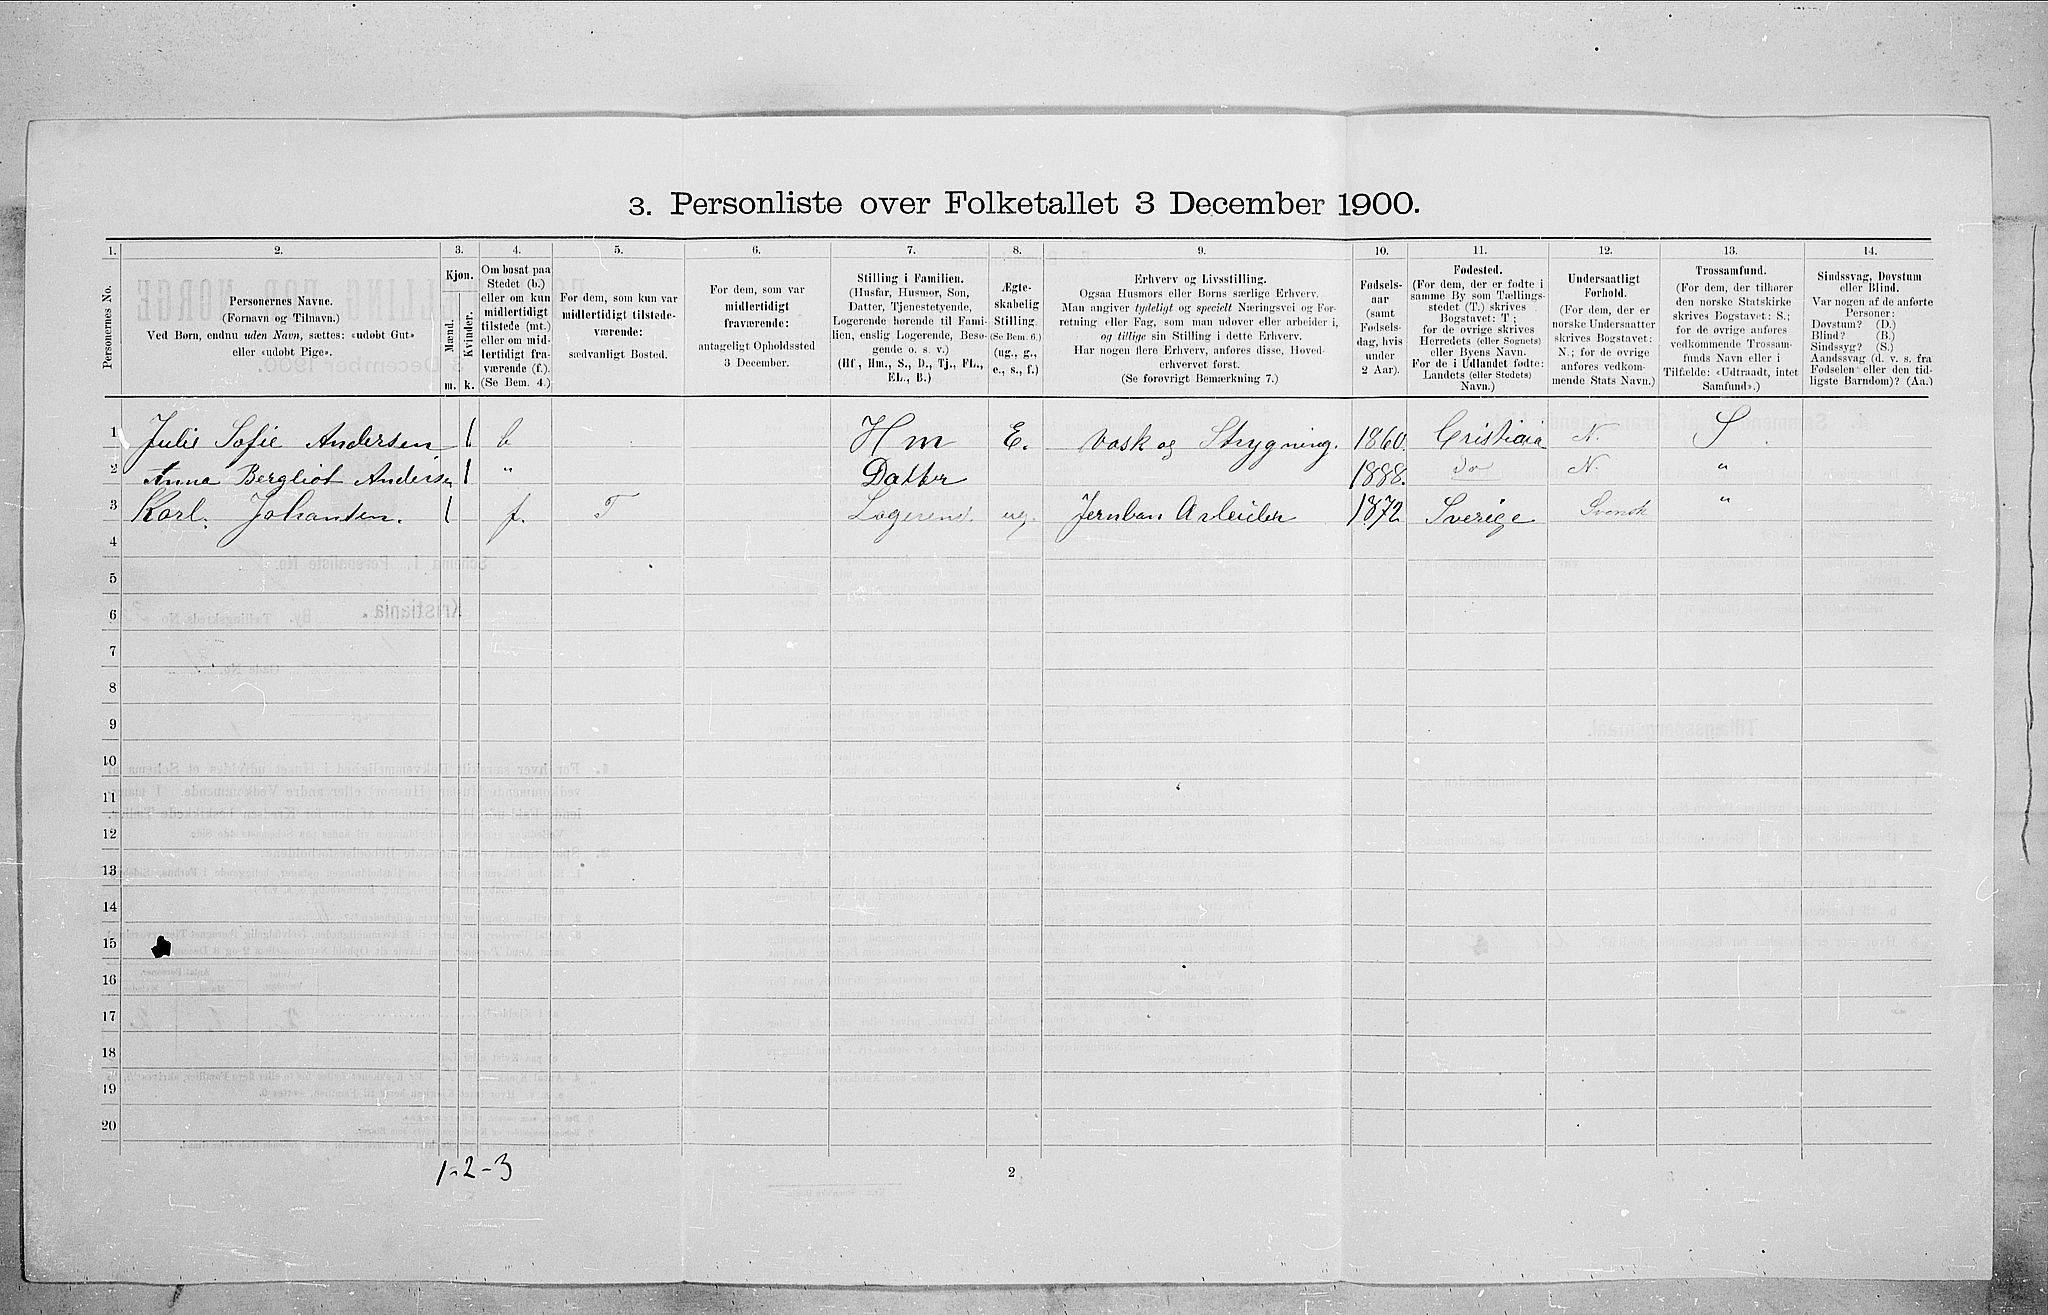 3. Personliste over Folketallet 3 December 1900.
1. 2. 3. 4. 5. 6. 7. 8. 9. 10. 11. 12. 13. 14.
Personernes No.
Personernes Navne.
(Fornavn og Tilnavn.)
Ved Børn, endnu uden Navn, sættes: «udøbt Gut»
eller «udøbt Pige».
Kjøn.
Mænd. Kvinder.
m. k.
Om bosat paa
Stedet (b.)
eller om kun
midlertidigt
tilstede (mt.)
eller om mid-
lertidigt fra-
værende (f.)
(Se Bem. 4.)
For dem, som kun var
midlertidigt tilstede-
værende:
sædvanligt Bosted.
For dem, som var
midlertidigt
fraværende:
antageligt Opholdssted
3 December.
Stilling i Familien.
(Husfar, Husmor, Søn,
Datter, Tjenestetyende,
Logerende hørende til Fami-
lien, enslig Logerende, Besø-
gende o. s. v.)
(Hf., Hm., S., D., Tj., FL.,
EL., B.)
Ægte-
skabelig
Stilling.
(Se Bem. 6.)
(ug., g.,
e., s., f.)
Erhverv og Livsstilling.
Ogsaa Husmors eller Børns særlige Erhverv.
Man angiver tydeligt og specielt Næringsvei og For-
retning eller Fag, som man udøver eller arbeider i,
og tillige sin Stilling i dette Erhverv.
Har nogen flere Erhverv, anføres disse, Hoved-
erhvervet først.
(Se forøvrigt Bemærkning 7.)
Fødsels-
aar
(samt
Fødsels-
dag, hvis
under
2 Aar).
Fødested.
(For dem, der er fødte i
samme By som Tællings-
stedet (T.) skrives
Bogstavet: T;
for de øvrige skrives
Herredets (eller Sognets)
eller Byens Navn.
For de i Udlandet fødte:
Landets (eller Stedets)
Navn.)
Undersaatligt
Forhold.
(For dem, der er
norske Undersaatter
skrives Bogstavet:
N.; for de øvrige
anføres vedkom-
mende Stats Navn.)
Trossamfund.
(For dem, der tilhører
den norske Statskirke
skrives Bogstavet: S.;
for de øvrige anføres
vedkommende Trossam-
funds Navn eller i
Tilfælde: «Udtraadt, intet
Samfund».)
Sindssvag, Døvstum
eller Blind.
Var nogen af de anførte
Personer:
Døvstum? (D.)
Blind? (B.)
Sindssyg? (S.)
Aandssvag (d. v. s. fra
Fødselen eller den tid-
ligste Barndom)? (Aa.)
1 Julie Sofie Andersen 1 b Hm E. Vask og Strygning. 1860. Cristiania N. S
2 Anna Bergliot Andersen 1 " Datter 1888. do N. "
3 Karl. Johansen. 1 f. T Logerend. ug. Jernban Arbeider 1872 Sverige Svensk "
4
5
6
7
8
9
10
11
12
13
14
15
16
17
18
19
20
1-2-3
2